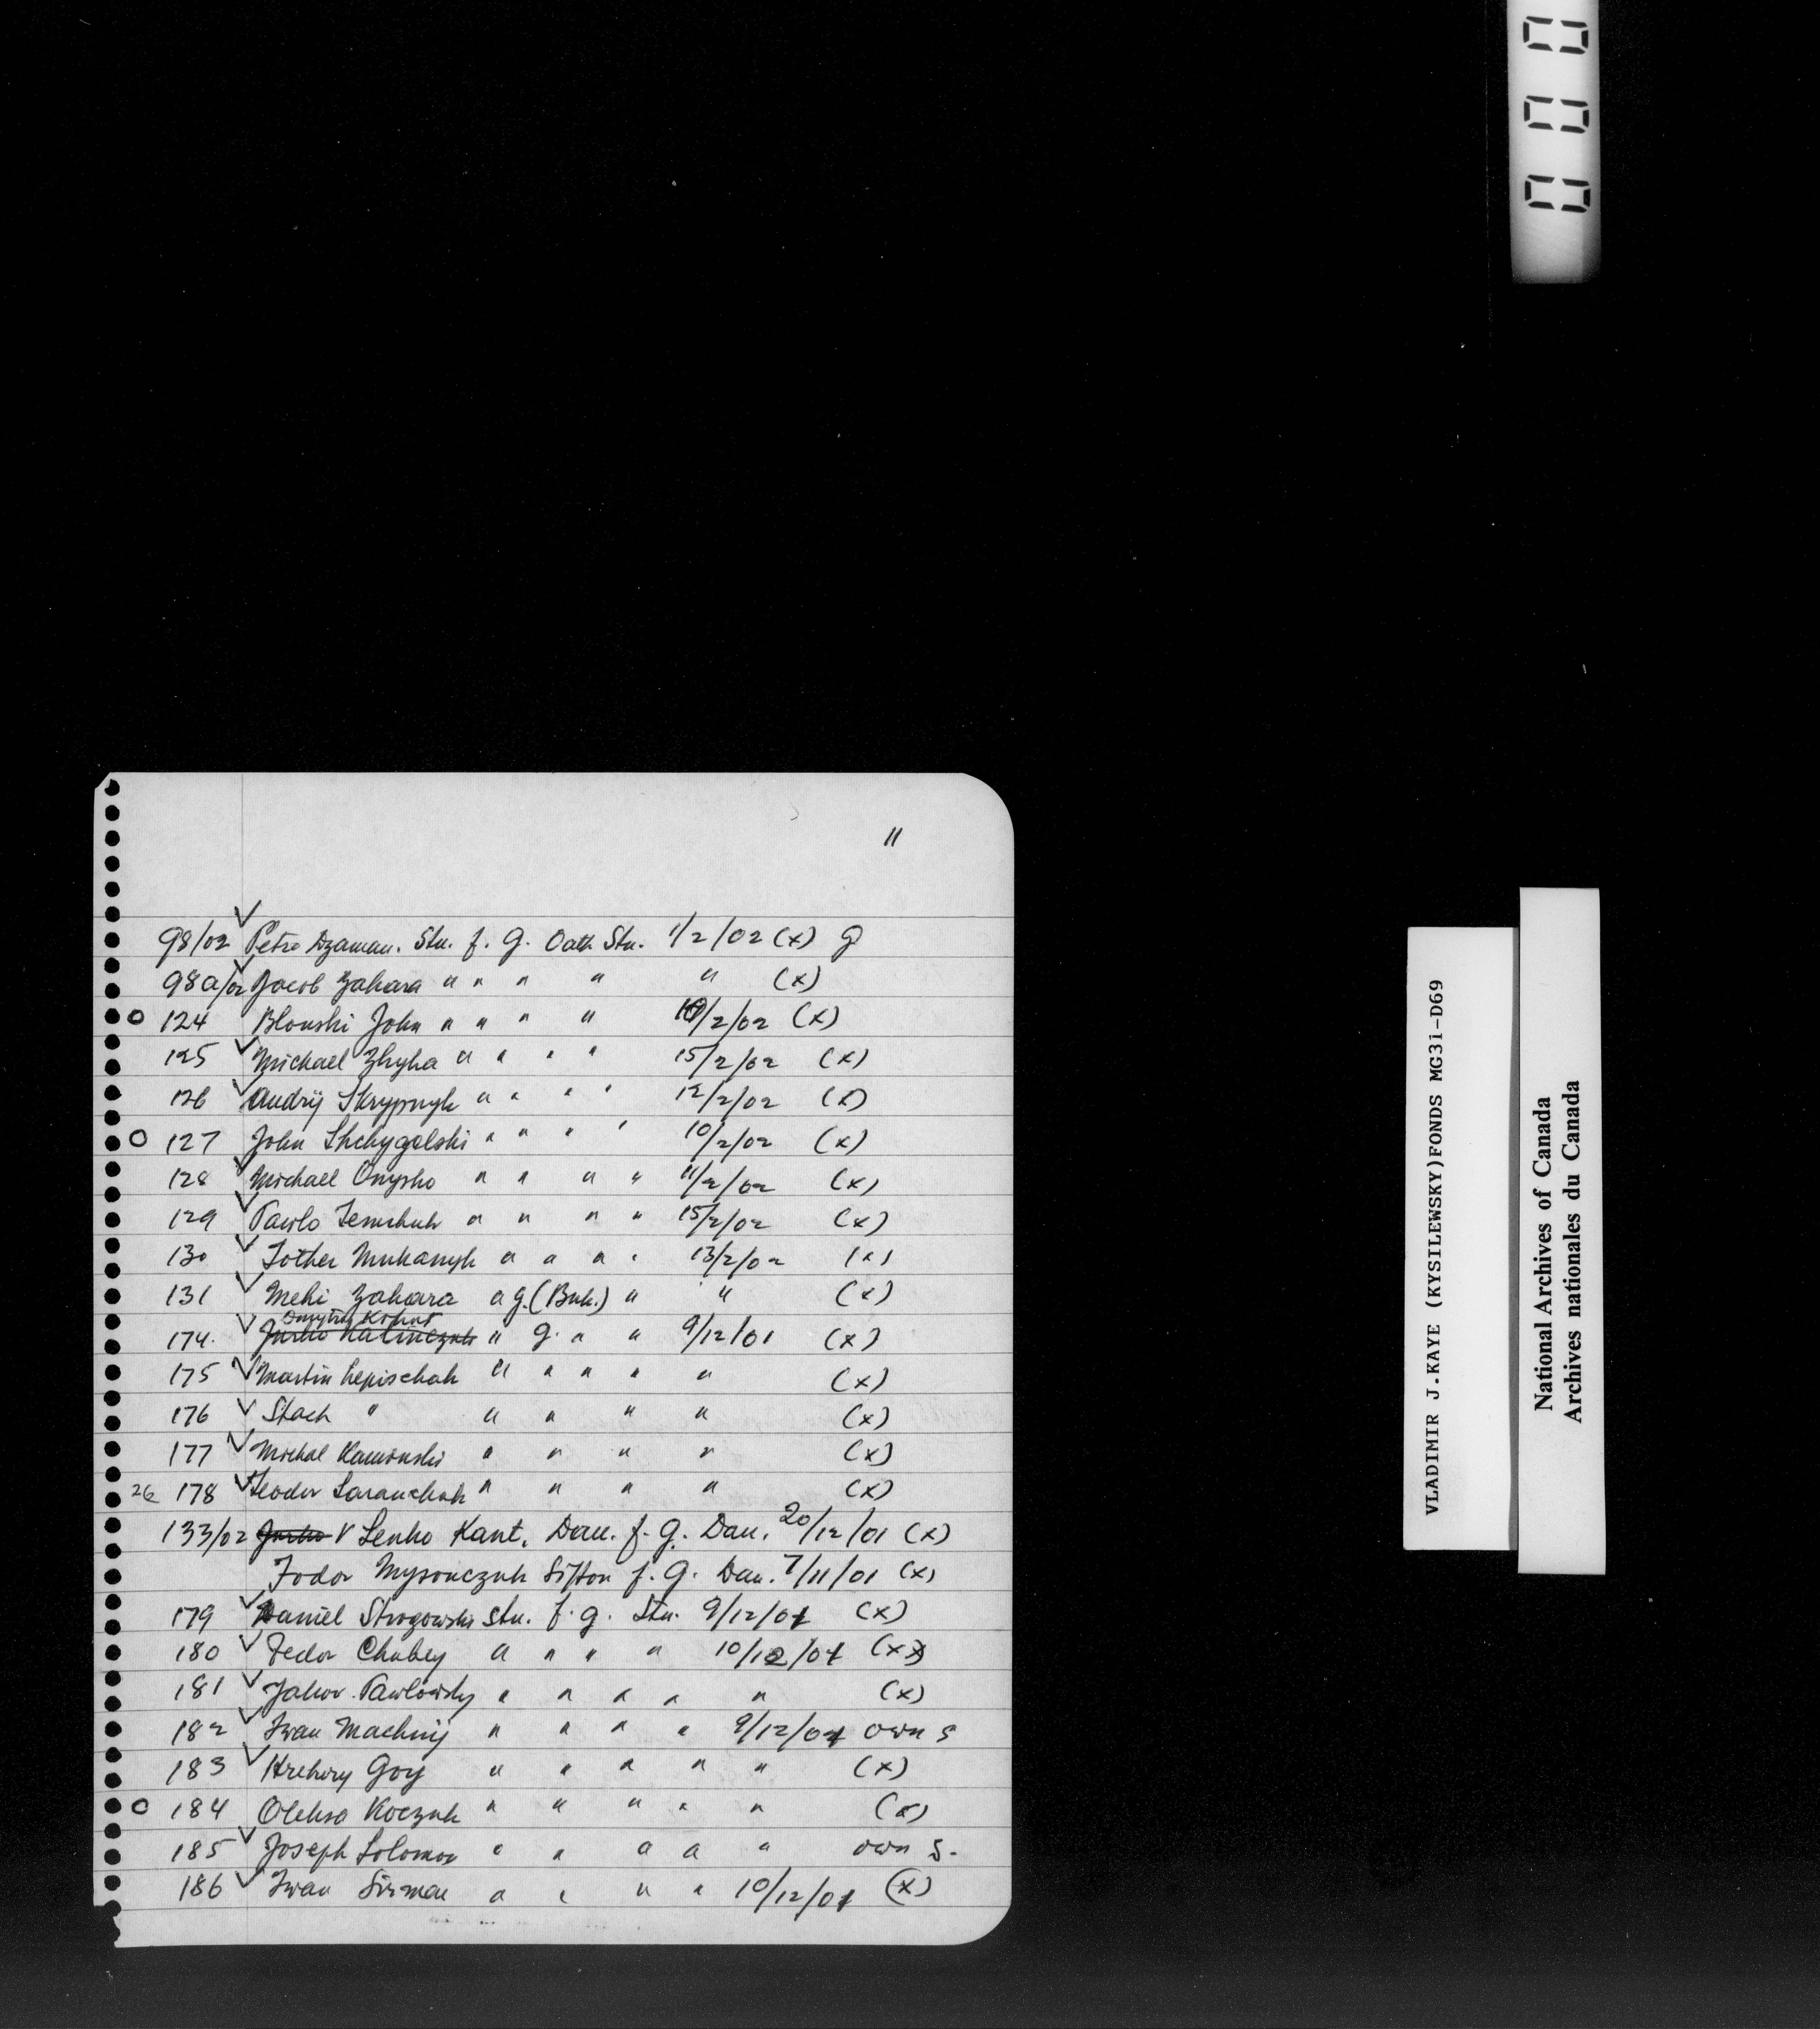 11
98/02 ✓ Petro Dzaman. Stu. f. g. Oath Stu. 1/2/02 (x) g
98a/02 ✓ Jacob Zahara " " " " " (x)
o 124 Blonski John " " " " 10/2/02 (x)
125 ✓ Michael Zhyha " " " " 15/2/02 (x)
126 ✓ Andrij Skrypnyk " " " " 12/2/02 (x)
o 127 John Shchygelski " " " " 10/2/02 (x)
128 ✓ Michael Onysko " " " " 11/2/02 (x)
129 ✓ Pawlo " " " " 15/2/02 (x)
130 ✓ " " " " 13/2/02 (x)
131 ✓ Meki Zahara " g. (Buk.) " " (x)
Dmytro Kohut
174. ✓ Jurko Kalinczuk " g. " " 9/12/01 (x)
175 ✓ Martin Lepischak " " " " " (x)
176 ✓ Stach " " " " " (x)
177 ✓ Michal Kaminski " " " " (x)
26 178 ✓ Teodor Saranchuk " " " " (x)
133/02 Jurko V Senko Kant. Dau. f. g. Dau. 20/12/01 (x)
Fodor Mysonczuk Sifton f. g. Dau. 7/11/01 (x)
179 ✓ Daniel Strogowski Stu. f. g. Stu. 9/12/01 (x)
180 ✓ Fedor Chubey " " " " 10/12/01 (x)
181 ✓ Jakov Pawlowsky " " " " " (x)
182 ✓ Iwan Machnij " " " " 9/12/01 own s
183 ✓ Hrehory Goy " " " " " (x)
o 184 Oleksa Koczuk " " " " " (x)
185 ✓ Joseph Solomon " " " " " own S.
186 ✓ Iwan Sirman " " " " 10/12/01 (x)
VLADIMIR J.KAYE (KYSILEWSKY)FONDS MG31-D69
National Archives of Canada
Archives nationales du Canada
000